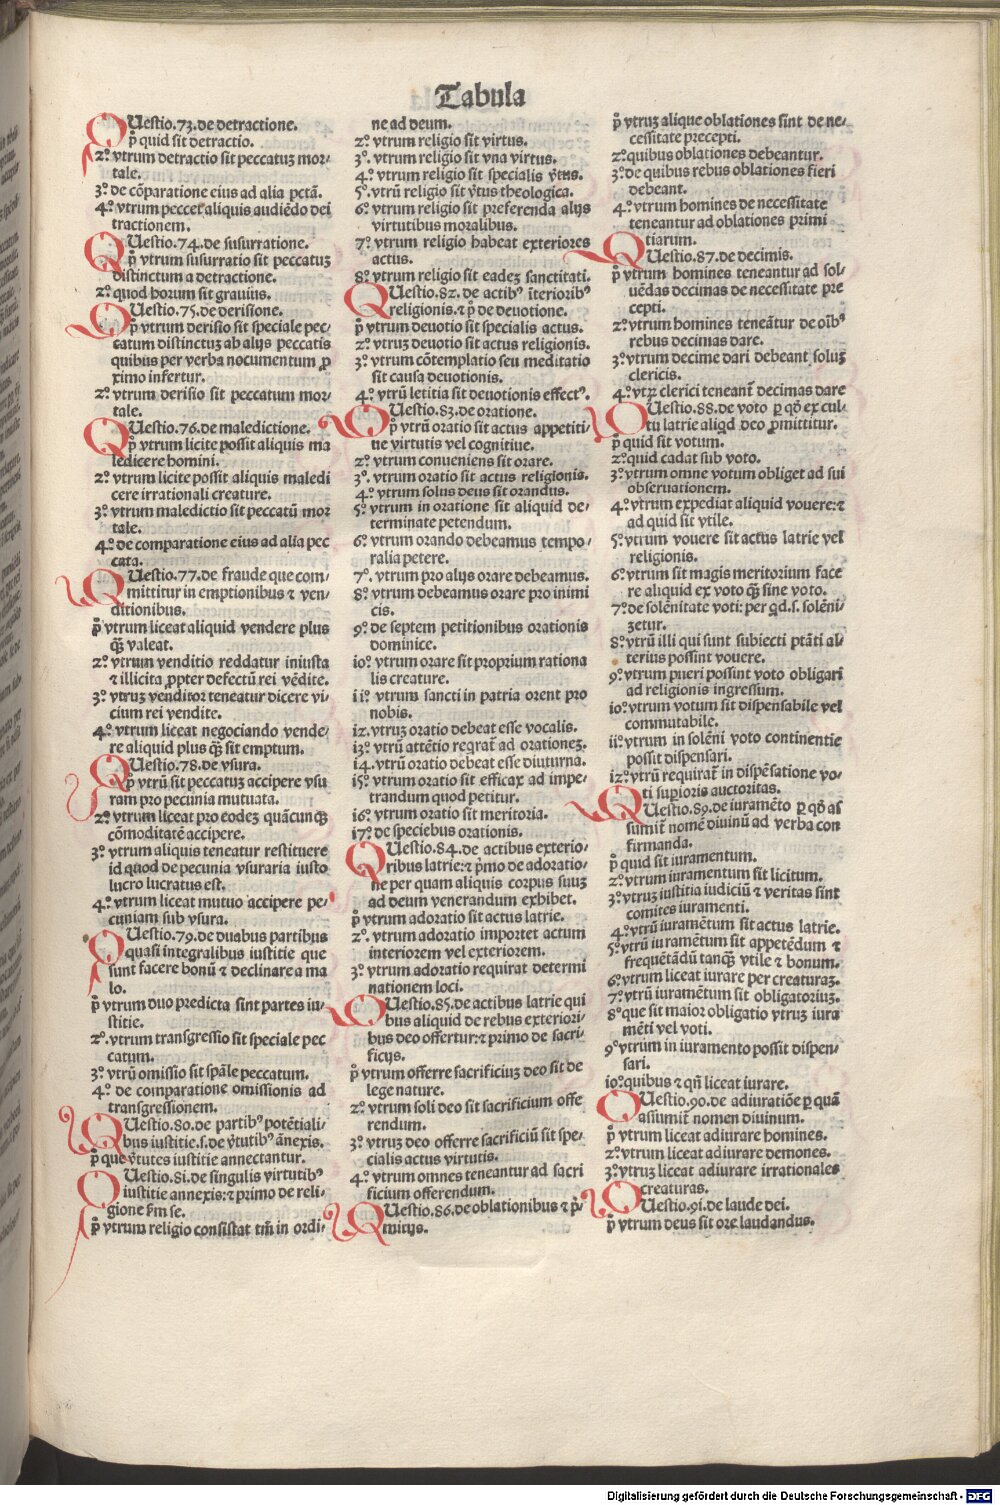 Tabula
QUestio.73.de detractione.
p̄ quid sit detractio.
2º vtrum detractio sit peccatuȝ mor⸗
tale.
3º de cōparatione eius ad alia pctā.
4º vtrum peccet aliquis audiēdo dei
tractionem.
QUestio.74.de susurratione.
p̄ vtrum susurratio sit peccatuȝ
distinctum a detractione.
2º quod horum sit grauius.
QUestio.75.de derisione.
p̄ vtrum derisio sit speciale pec⸗
catum distinctuȝ ab alijs peccatis
quibus per verba nocumentum ꝓ
ximo infertur.
2º vtrum derisio sit peccatum mor⸗
tale.
QUestio.76.de maledictione.
p̄ vtrum licite possit aliquis ma
ledicere homini.
2º vtrum licite possit aliquis maledi
cere irrationali creature.
3º vtrum maledictio sit peccatū mor
tale.
4º de comparatione eius ad alia pec
cata.
QUestio.77.de fraude que com⸗
mittitur in emptionibus ⁊ ven⸗
ditionibus.
p̄ vtrum liceat aliquid vendere plus
q̄ȝ valeat.
2º vtrum venditio reddatur iniusta
⁊ illicita ꝓpter defectū rei vēdite.
3º vtruȝ venditor teneatur dicere vi⸗
cium rei vendite.
4º vtrum liceat negociando vende⸗
re aliquid plus q̄ȝ sit emptum.
QUestio.78.de vsura.
p̄ vtrū sit peccatuȝ accipere vsu
ram pro pecunia mutuata.
2º vtrum liceat pro eodeȝ quācunqȝ
cōmoditatē accipere.
3º vtrum aliquis teneatur restituere
id quod de pecunia vsuraria iusto
lucro lucratus est.
4º vtrum liceat mutuo accipere pe⸗
cuniam sub vsura.
QUestio.79.de duabus partibus
quasi integralibus iustitie que
sunt facere bonū ⁊ declinare a ma
lo.
p̄ vtrum duo predicta sint partes iu⸗
stitie.
2º. vtrum transgressio sit speciale pec
catum.
3º vtrū omissio sit spāle peccatum.
4º de comparatione omissionis ad
transgressionem.
QUestio.80.de partibꝰ potētiali⸗
bus iustitie.s.de v̄tutibꝰ ānexis.
p̄ que v̄tutes iustitie annectantur.
QUestio.81.de singulis virtutibꝰ
iustitie annexis:⁊ primo de reli⸗
gione ſm se.
p̄ vtrum religio consistat tm̄ in ordi⸗
ne ad deum.
2º vtrum religio sit virtus.
3º. vtrum religio sit vna virtus.
4º vtrum religio sit specialis v̄tus.
5º vtrū religio sit v̄tus theologica.
6º vtrum religio sit preferenda alijs
virtutibus moralibus.
7º vtrum religio habeat exteriores
actus.
8º vtrum religio sit eadeȝ sanctitati.
QUestio.82. de actibꝰ īterioribꝰ
religionis.⁊ p̄ de deuotione.
p̄ vtrum deuotio sit specialis actus.
2º vtruȝ deuotio sit actus religionis.
3º vtrum cōtemplatio seu meditatio
sit causa deuotionis.
4º vtrū letitia sit deuotionis effectꝰ.
QUestio.83.de oratione.
p̄ vtrū oratio sit actus appetiti⸗
ue virtutis vel cognitiue.
2º vtrum conueniens sit orare.
3º. vtrum oratio sit actus religionis.
4º vtrum solus deus sit orandus.
5º vtrum in oratione sit aliquid de⸗
terminate petendum.
6º vtrum orando debeamus tempo⸗
ralia petere.
7º. vtrum pro alijs orare debeamus.
8º vtrum debeamus orare pro inimi
cis.
9º de septem petitionibus orationis
dominice.
10º vtrum orare sit proprium rationa
lis creature.
11º vtrum sancti in patria orent pro
nobis.
12. vtruȝ oratio debeat esse vocalis.
13º vtrū attētio reqrat̄ ad orationeȝ.
14.vtrū oratio debeat esse diuturna.
15º vtrum oratio sit efficax ad impe⸗
trandum quod petitur.
16º vtrum oratio sit meritoria.
17º de speciebus orationis.
QUestio.84.de actibus exterio⸗
ribus latrie:⁊ p̄mo de adoratio⸗
ne per quam aliquis corpus suuȝ
ad deum venerandum exhibet.
p̄ vtrum adoratio sit actus latrie.
2º. vtrum adoratio importet actum
interiorem vel exteriorem.
3º vtrum adoratio requirat determi
nationem loci.
QUestio.85.de actibus latrie qui
bus aliquid de rebus exteriori⸗
bus deo offertur:⁊ primo de sacri⸗
ficijs.
p̄ vtrum offerre sacrificiuȝ deo sit de
lege nature.
2º vtrum soli deo sit sacrificium offe
rendum.
3º vtruȝ deo offerre sacrificiū sit spe⸗
cialis actus virtutis.
4º vtrum omnes teneantur ad sacri
ficium offerendum.
QUestio.86.de oblationibus ⁊ p̄⸗
mitijs.
p̄ vtruȝ alique oblationes sint de ne⸗
cessitate precepti.
2º quibus oblationes debeantur.
3º de quibus rebus oblationes fieri
debeant.
4º vtrum homines de necessitate
teneantur ad oblationes primi
tiarum.
QUestio.87.de decimis.
p̄ vtrum homines teneantur ad sol⸗
uēdas decimas de necessitate pre
cepti.
2º vtrum homines teneātur de oībꝰ
rebus decimas dare.
3º vtrum decime dari debeant soluȝ
clericis.
4º vtꝝ clerici teneant̄ decimas dare
QUestio.88.de voto ꝑ qō ex cul⸗
tu latrie aliqd deo ꝓmittitur.
p̄ quid sit votum.
2º quid cadat sub voto.
3º vtrum omne votum obliget ad sui
obseruationem.
4º vtrum expediat aliquid vouere:⁊
ad quid sit vtile.
5º vtrum vouere sit actus latrie vel
religionis.
6º vtrum sit magis meritorium face
re aliquid ex voto q̄ȝ sine voto.
7º de solēnitate voti: per qd.s.solēni⸗
ȝetur.
8º vtrū illi qui sunt subiecti ptāti al⸗
terius possint vouere.
9º vtrum pueri possint voto obligari
ad religionis ingressum.
10º vtrum votum sit dispensabile vel
commutabile.
11º vtrum in solēni voto continentie
possit dispensari.
12º vtrū requirat̄ in dispēsatione vo⸗
ti supioris auctoritas.
QUestio.89.de iuramēto ꝑ qō as
sumit̄ nomē diuinū ad verba con
firmanda.
p̄ quid sit iuramentum.
2º vtrum iuramentum sit licitum.
3º vtruȝ iustitia iudiciū ⁊ veritas sint
comites iuramenti.
4º vtrū iuramētum sit actus latrie.
5º vtrū iuramētum sit appetēdum ⁊
frequētādū tanqȝ vtile ⁊ bonum.
6º vtrum liceat iurare per creaturaȝ.
7º vtrū iuramētum sit obligatoriuȝ.
8º que sit maior obligatio vtruȝ iura
mēti vel voti.
9º vtrum in iuramento possit dispen⸗
sari.
10º quibus ⁊ qn̄ liceat iurare.
QUestio.90.de adiuratiōe ꝑ quā
assumit̄ nomen diuinum.
p̄ vtrum liceat adiurare homines.
2º vtrum liceat adiurare demones.
3º vtruȝ liceat adiurare irrationales
creaturas.
QUestio.91.de laude dei.
p̄ vtrum deus sit ore laudandus.
Digitalisierung gefördert durch die Deutsche Forschungsgemeinschaft - DFG